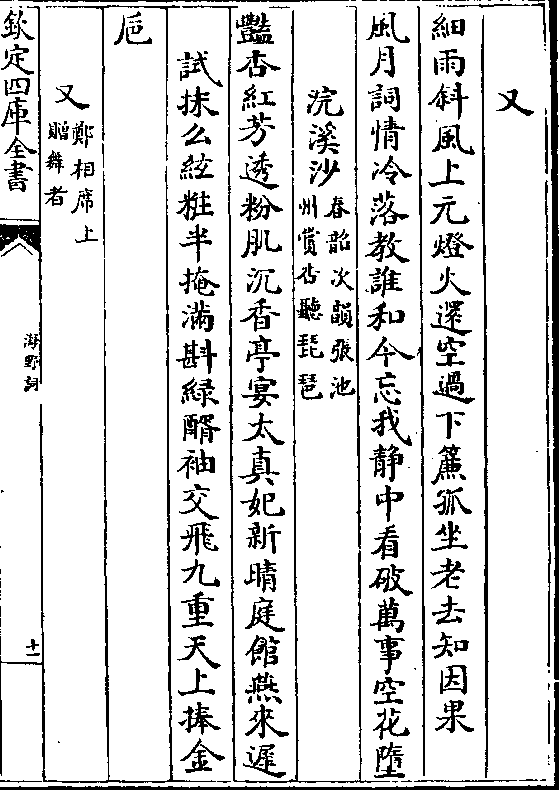 又
細雨斜風上元燈火還空過下簾孤坐老去知因果
風月詞情冷落教誰和今忘我静中看破萬事空花墮
浣溪沙
春韶次韻張池
州賞杏聽琵琶
豔杏紅芳透粉肌沉香亭宴太真妃新晴庭館燕來遲
試抹么絃粧半掩滿斟緑醑袖交飛九重天上捧金
巵
又
鄭相席上
贈舞者
欽定四庫全書
海野詞
十一